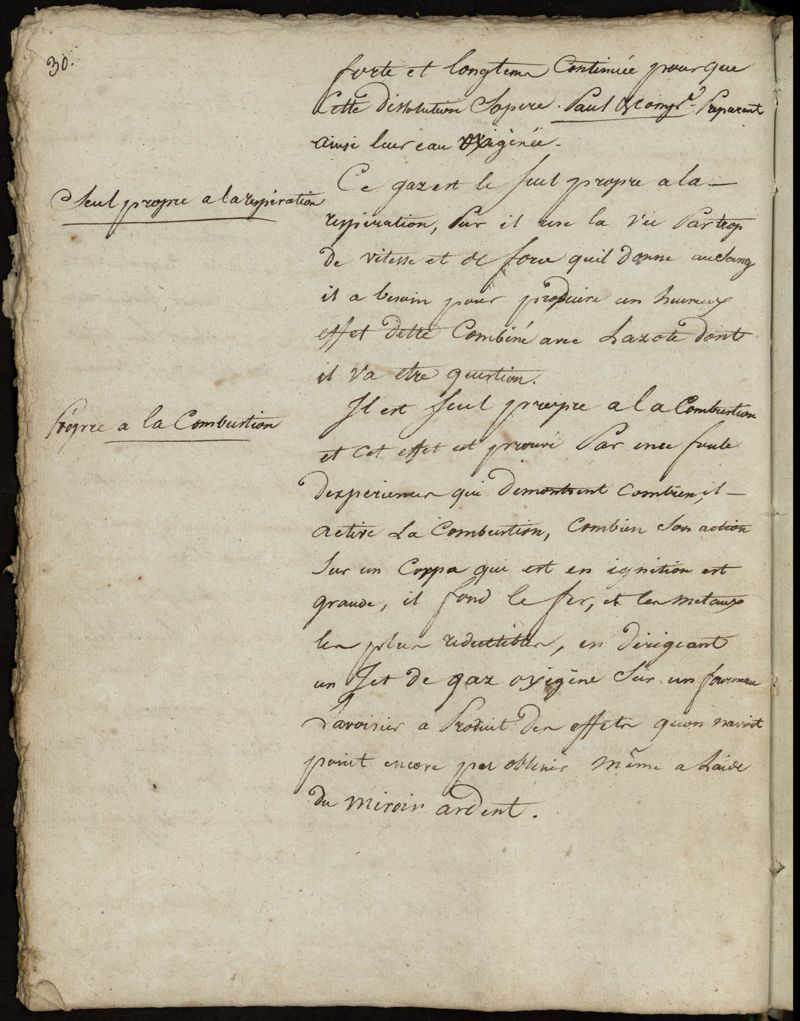 30.
forte et longtems Continuée pour que
Cette dissolution Sopere. Paul & Comp.e Preparent
ainsi leur eau oxigénée.
Seul propre a la respiration
Ce gaz est le seul propre a la
respiration, Pur il use la vie Par trop
de vitesse et de force quil donne au sang
il a besoin pour produire un heureux
effet dette Combiné avec Lazote dont
il va etre question.
Propre a la Combustion
Il est seul propre a la Combustion
et cet effet est prouvé Par une foule
dexperiences qui demontrent combien il
active La Combustion, combien Son action
Sur un Corps qui est en ignition est
grande, il fond le fer, et les metaux
les plus reductibles, en dirigeant
un Jet de gaz oxigène Sur un fourneau
Lavoisier a Produit des effets quon navoit
point encore pu obtenir même a Laide
du miroir ardent.